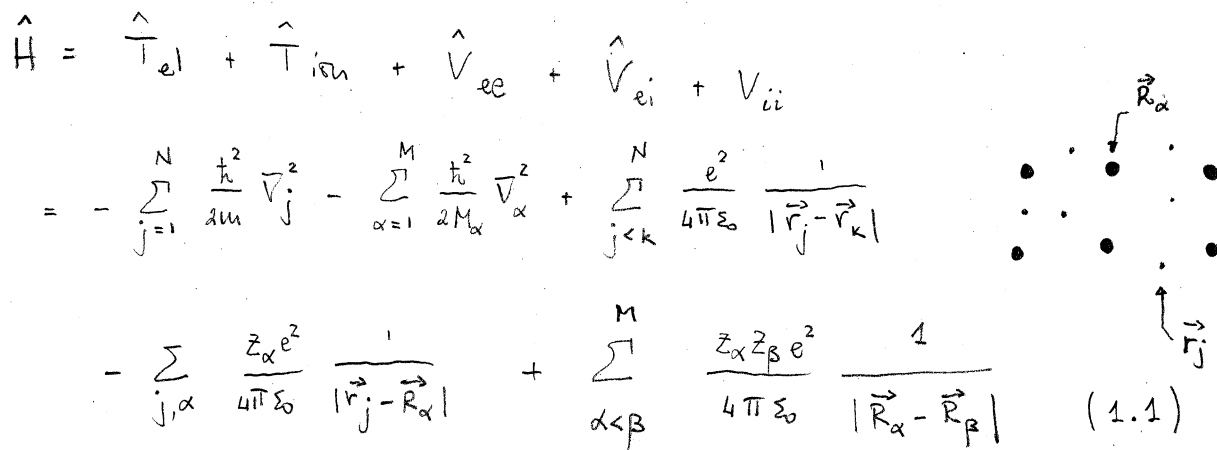 Ĥ = T̂_el + T̂_ion + V̂_ee + V̂_ei + V_ii
= - ∑_{j=1}^{N} ħ²/2m ∇_j² - ∑_{α=1}^{M} ħ²/2M_α ∇_α² + ∑_{j<k}^{N} e²/4πε₀ 1/|r⃗_j - r⃗_k|
- ∑_{j,α} Z_α e²/4πε₀ 1/|r⃗_j - R⃗_α| + ∑_{α<β}^{M} Z_α Z_β e²/4πε₀ 1/|R⃗_α - R⃗_β| (1.1)
R⃗_α
r⃗_j